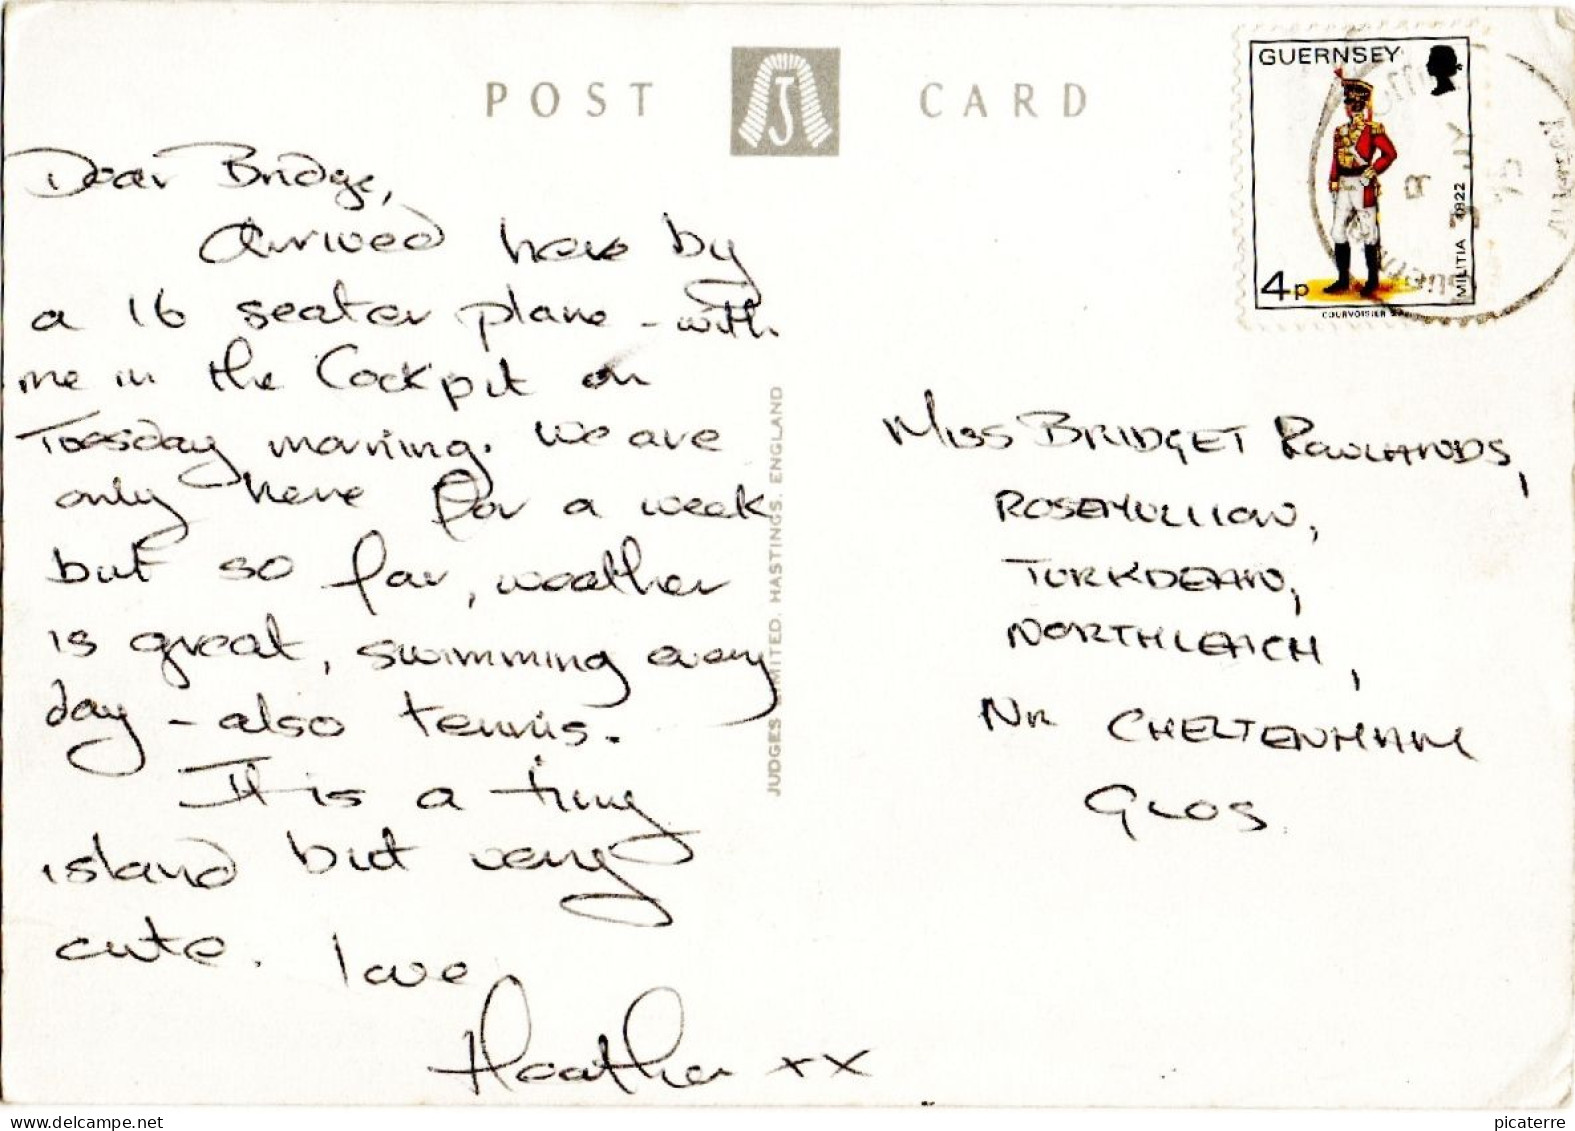 POST CARD
GUERNSEY
4p
MILITIA 1822
COURVOISIER
Dear Bridge,
Arrived here by
a 16 seater plane - with
me in the Cockpit on
Tuesday morning. We are
only here for a week
but so far, weather
is great, swimming every
day - also tennis.
It is a tiny
island but very
cute. love
Heather xx
JUDGES LIMITED. HASTINGS. ENGLAND
MISS BRIDGET ROWLANDS,
ROSEMULLION,
TURKDEAN,
NORTHLEACH,
NR CHELTENHAM
GLOS
picaterre
www.delcampe.net